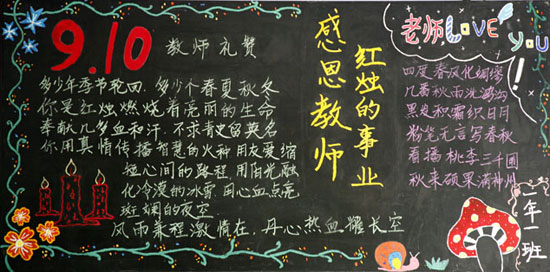 9.10
教师礼赞
多少年季节轮回,多少个春夏秋冬
你是红烛燃烧着亮丽的生命
奉献几多血和汗,不求青史留英名
你用真情传播智慧的火种 用友爱缩
短心间的路程 用阳光融
化冷漠的冰雪 用心血点亮
斑斓的夜空
风雨来程激情在,丹心热血耀长空
感恩教师
红烛的事业
老师LOVE you
四度春风化绸缪
几番秋雨洗鸿沟
黑发积霜织日月
粉笔无言写春秋
看播桃李三千圃
秋来硕果满神州
一年一班